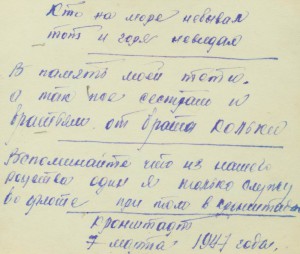 Кто на море небывал
тот и горя невидал
В память моей тёти.
а так же сестрам и
братьям. от брата Кольки
Вспоминайте что из нашего
родства один я только служу
во флоте при том в
Кронштадт
7 марта 1947 года.